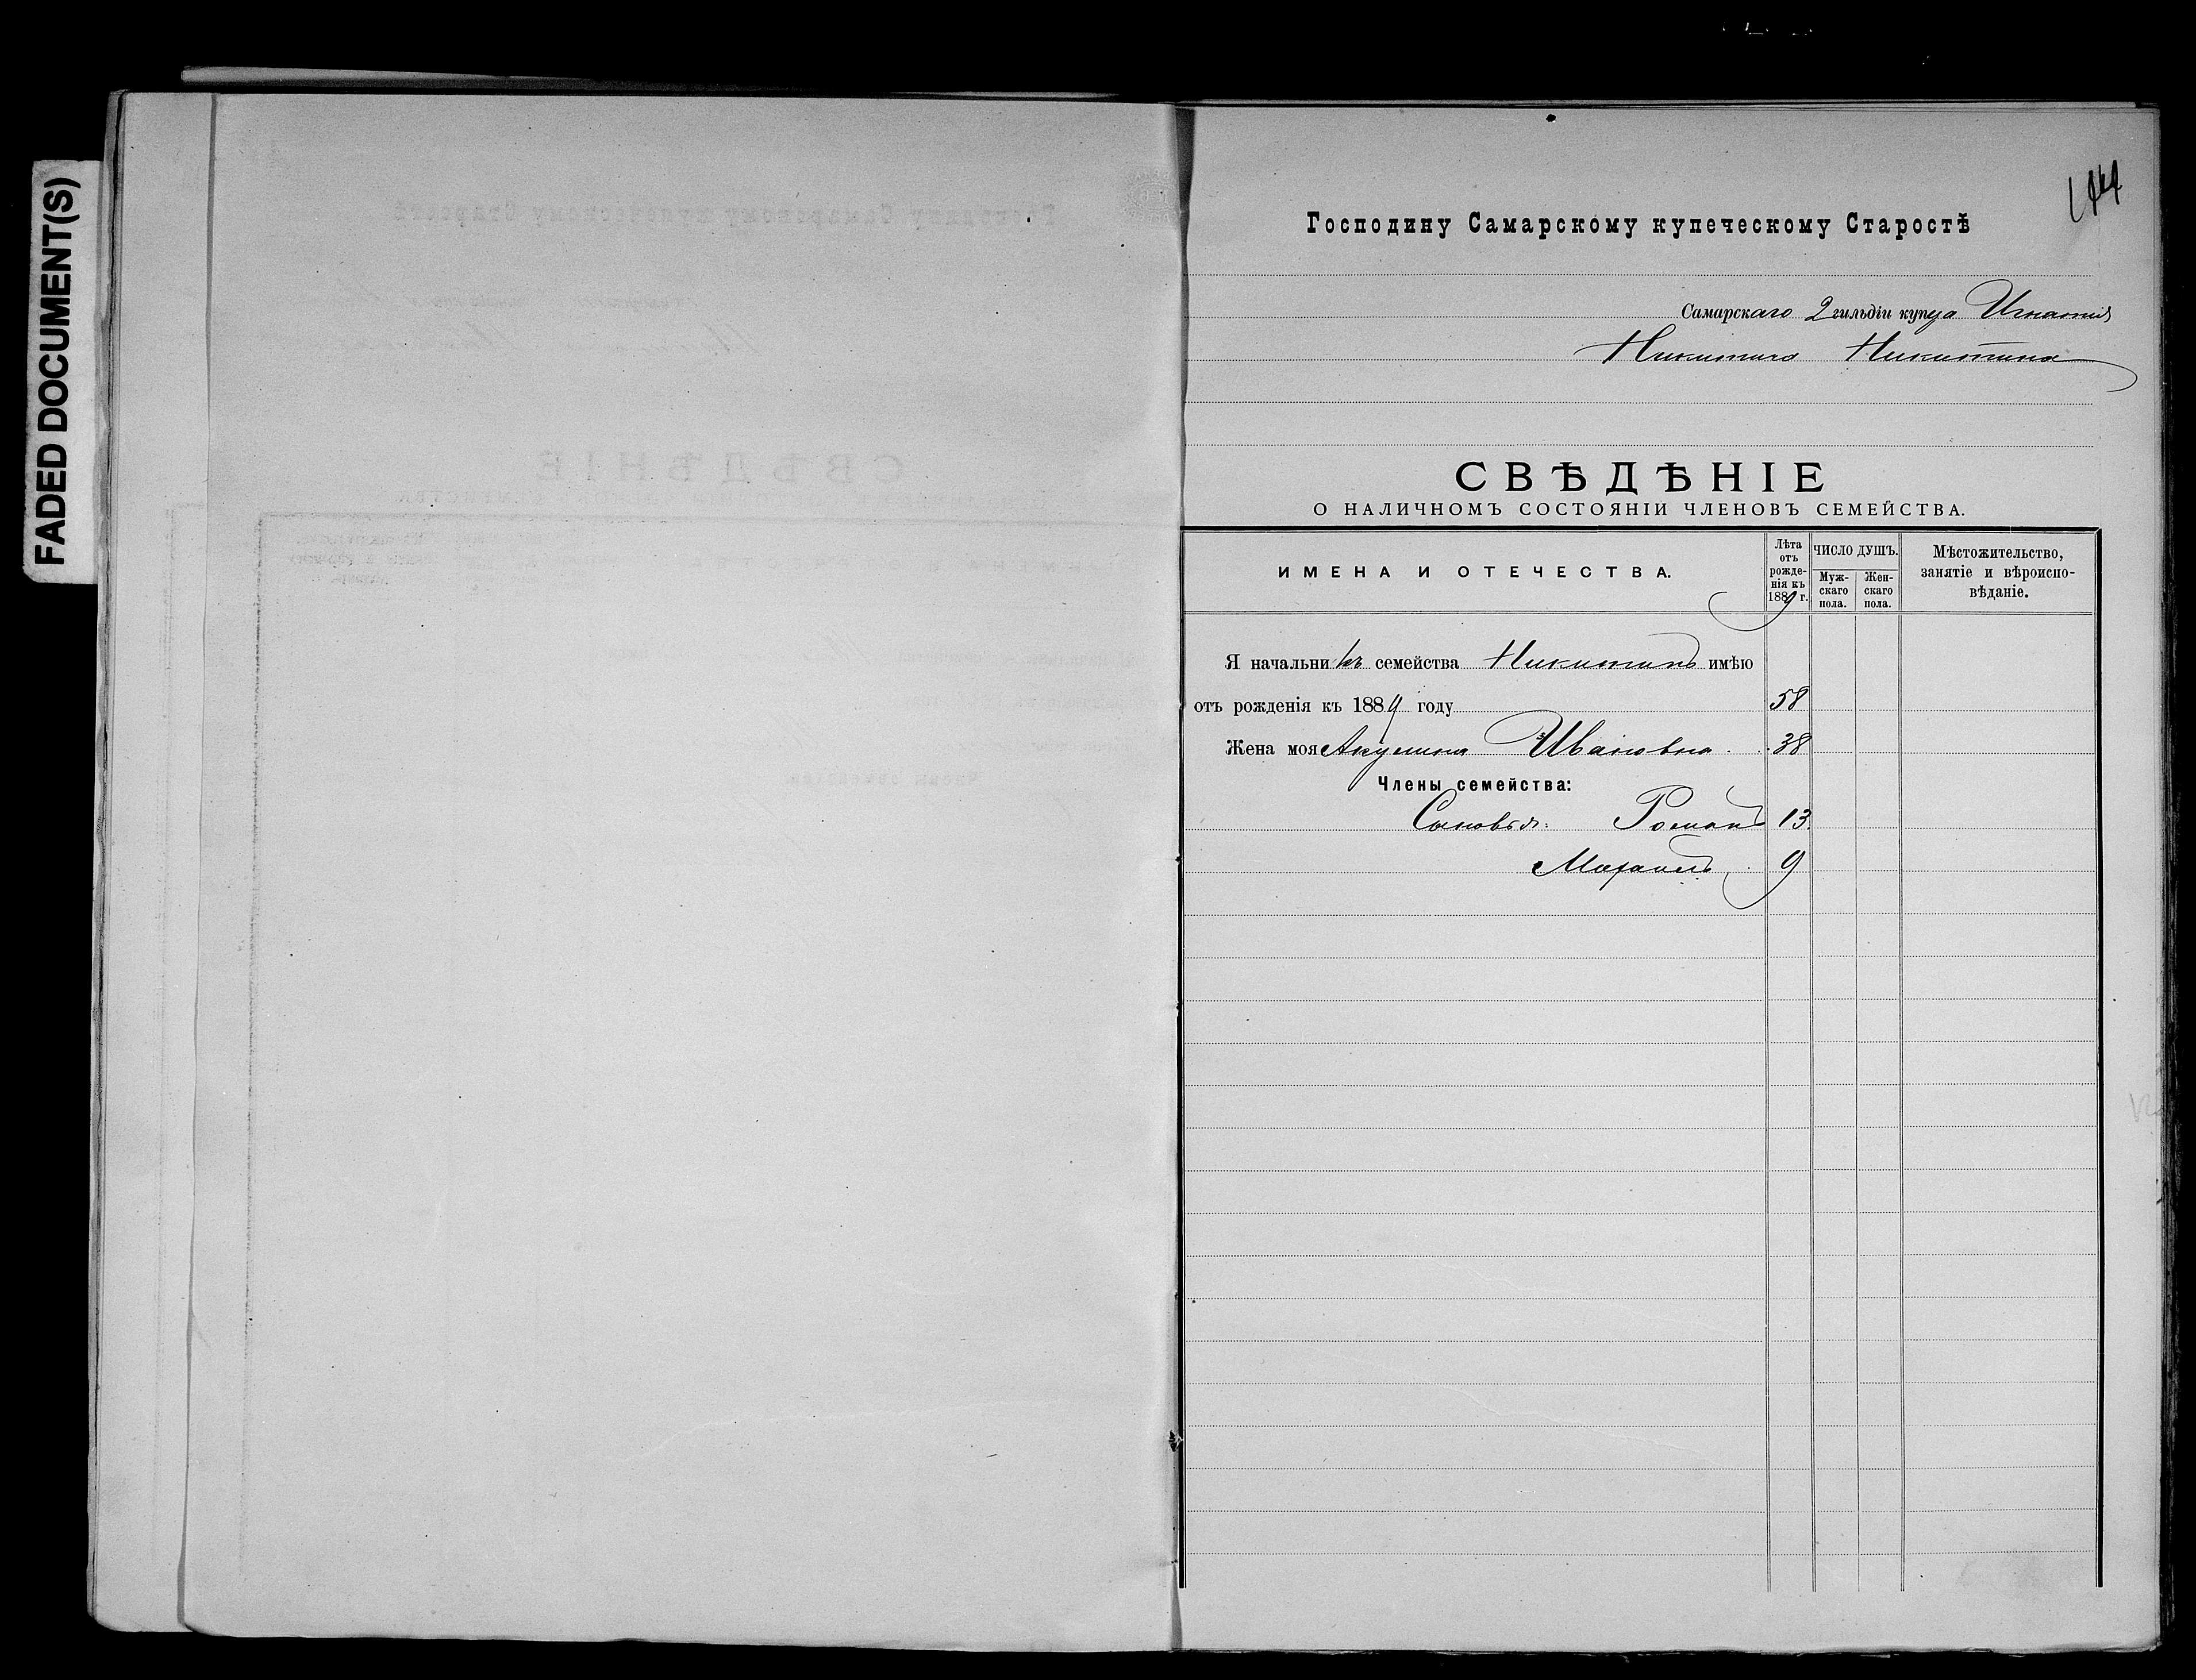 FADED DOCUMENT(S)
144
Господину Самарскому купеческому Старостѣ
Самарскаго 2 гильдіи купца Игнатія
Никитича Никитина
СВѢДѢНІЕ
О НАЛИЧНОМЪ СОСТОЯНІИ ЧЛЕНОВЪ СЕМЕЙСТВА.
ИМЕНА И ОТЕЧЕСТВА.
Лѣта отъ рожденія къ 1889 г.
ЧИСЛО ДУШЪ.
Мужскаго пола.
Женскаго пола.
Мѣстожительство, занятіе и вѣроисповѣданіе.
Я начальникъ семейства Никитинъ имѣю
отъ рожденія къ 1889 году 58
Жена моя Акулина Ивановна 38
Члены семейства:
Сыновья: Романъ 13
Михаилъ 9